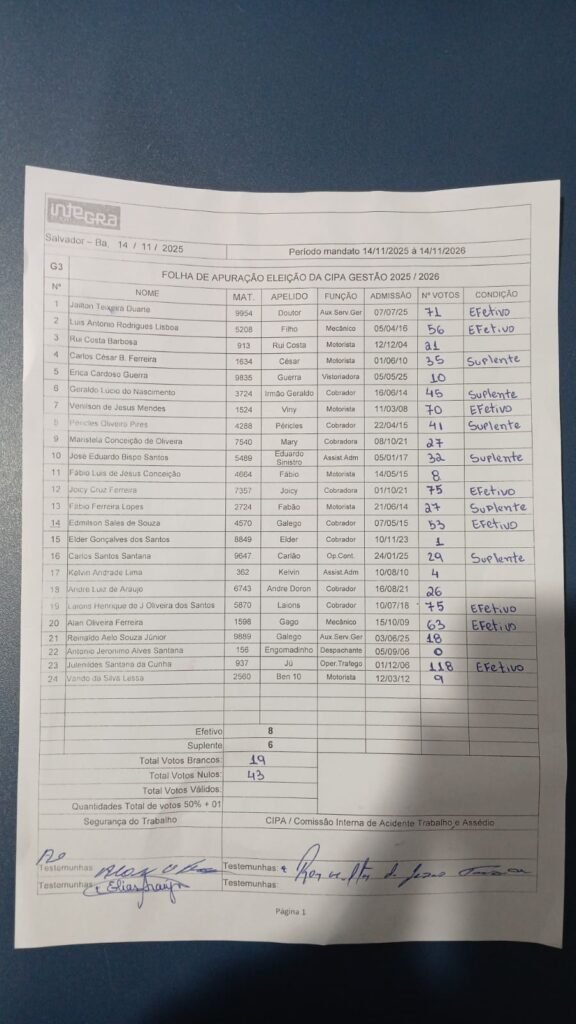 INTEGRA
Salvador – Ba, 14 / 11 / 2025 Período mandato 14/11/2025 à 14/11/2026
G3 FOLHA DE APURAÇÃO ELEIÇÃO DA CIPA GESTÃO 2025 / 2026
Nº NOME MAT. APELIDO FUNÇÃO ADMISSÃO Nº VOTOS CONDIÇÃO
1 Jailton Teixeira Duarte 9954 Doutor Aux Serv.Ger 07/07/25 71 Efetivo
2 Luis Antonio Rodrigues Lisboa 5208 Filho Mecânico 05/04/16 56 Efetivo
3 Rui Costa Barbosa 913 Rui Costa Motorista 12/12/04 21
4 Carlos César B. Ferreira 1634 César Motorista 01/06/10 35 Suplente
5 Erica Cardoso Guerra 9835 Guerra Vistoriadora 05/05/25 10
6 Geraldo Lucio do Nascimento 3724 Irmão Geraldo Cobrador 16/06/14 45 Suplente
7 Venilson de Jesus Mendes 1524 Viny Motorista 11/03/08 70 Efetivo
8 Péricles Oliveira Pires 4288 Péricles Cobrador 22/04/15 41 Suplente
9 Maristela Conceição de Oliveira 7540 Mary Cobradora 08/10/21 27
10 José Eduardo Bispo Santos 5489 Eduardo Sinistro Assist.Adm 05/01/17 32 Suplente
11 Fábio Luis de Jesus Conceição 4664 Fábio Motorista 14/05/15 8
12 Joicy Cruz Ferreira 7357 Joicy Cobradora 01/10/21 75 Efetivo
13 Fábio Ferreira Lopes 2724 Fabão Motorista 21/06/14 27 Suplente
14 Edmilson Sales de Souza 4570 Galego Cobrador 07/05/15 53 Efetivo
15 Elder Gonçalves dos Santos 8849 Elder Cobrador 10/11/23 1
16 Carlos Santos Santana 9647 Carlão Op.Cont. 24/01/25 29 Suplente
17 Kelvin Andrade Lima 362 Kelvin Assist.Adm 10/08/10 4
18 Andre Luiz de Araujo 6743 Andre Doron Cobrador 16/08/21 26
19 Laions Henrique de J Oliveira dos Santos 5870 Laions Cobrador 10/07/18 75 Efetivo
20 Alan Oliveira Ferreira 1598 Gago Mecânico 15/10/09 63 Efetivo
21 Reinaldo Aelo Souza Júnior 9889 Galego Aux Serv Ger 03/06/25 18
22 Antonio Jeronimo Alves Santana 156 Engomadinho Despachante 05/09/06 0
23 Julenildes Santana da Cunha 937 Jú Oper.Trafego 01/12/06 118 Efetivo
24 Vando da Silva Lessa 2560 Ben 10 Motorista 12/03/12 9
Efetivo 8
Suplente 6
Total Votos Brancos: 19
Total Votos Nulos: 43
Total Votos Válidos:
Quantidades Total de votos 50% + 01
Segurança do Trabalho CIPA / Comissão Interna de Acidente Trabalho e Assédio
Testemunhas Testemunhas:
Testemunhas: Testemunhas:
Página 1